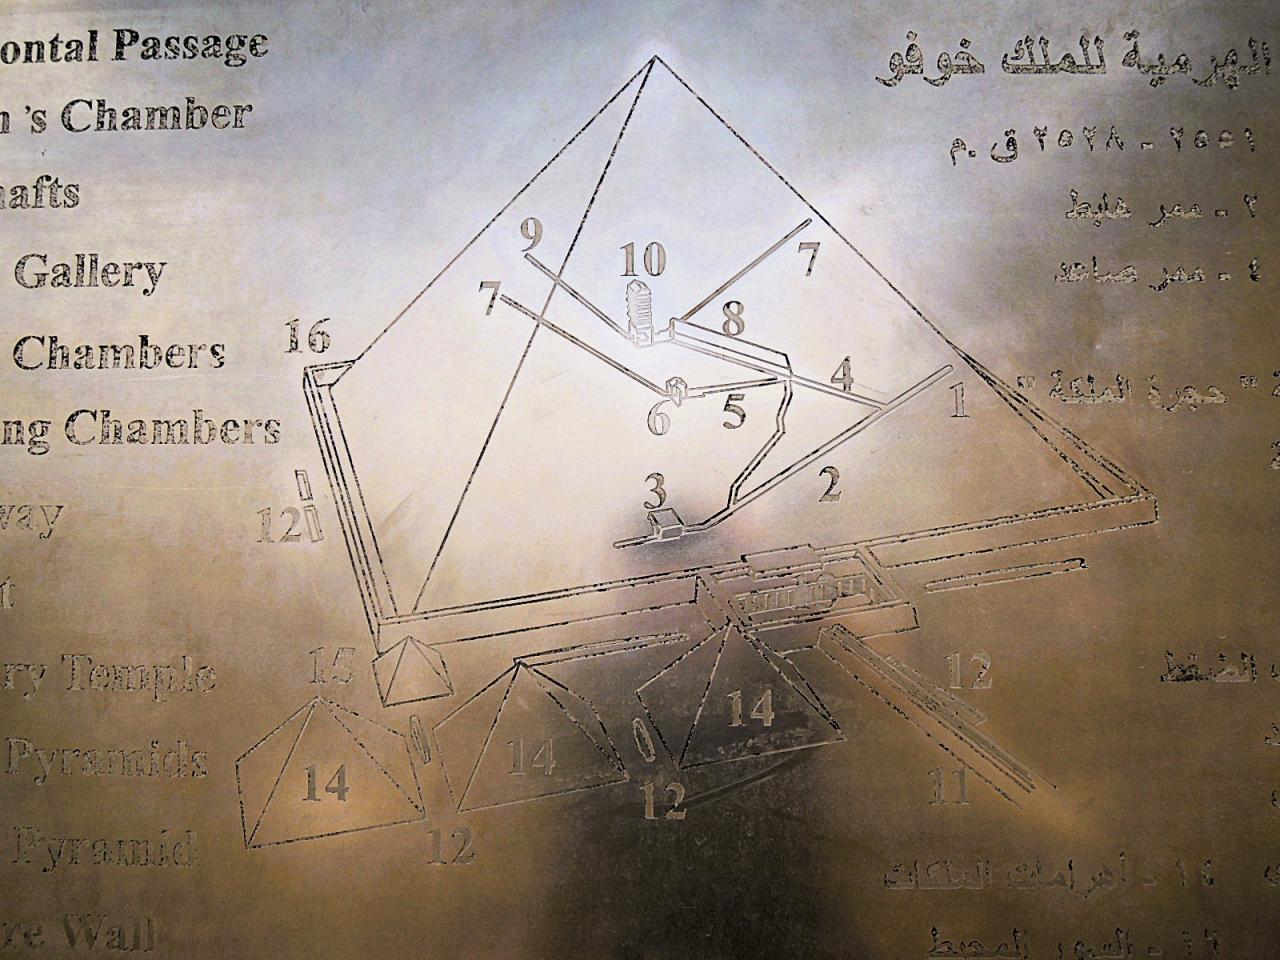 ontal Passage
n 's Chamber
hafts
Gallery
Chambers
ng Chambers
way
t
ry Temple
Pyramids
Pyramid
re Wall
الهرمية للملك خوفو
٢٥٥١ - ٢٥٢٨ ق.م
٢ - ممر هابط
٤ - ممر صاعد
" حجرة الملكة "
الضغط
١٤ - أهرامات الملكات
١٦ - السور المحيط
9
10
7
7
8
16
4
1
6
5
3
2
12
15
12
14
14
14
11
12
12